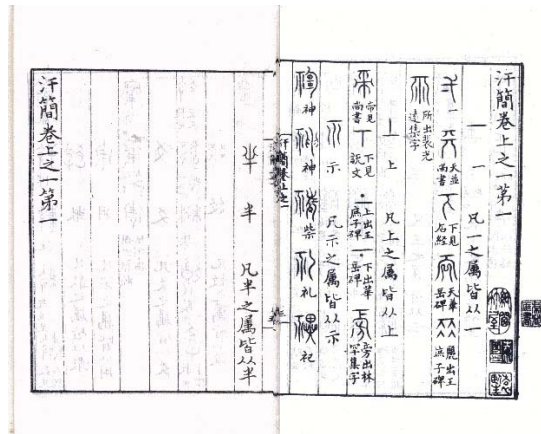 汗簡卷上之一第一
一 一 凡一之属皆从一
一 天並尚書 下見石經 天華岳碑 麗出王庶子碑
所出裴光遠集字
上 凡上之属皆从上
帝見尚書 下見說文 上出王庶子碑 下出華岳碑 旁出林罕集字
示 凡示之属皆从示
神 神 柴 礼 祀
汗簡卷上之一
半 凡半之属皆从半
汗簡卷上之一第一